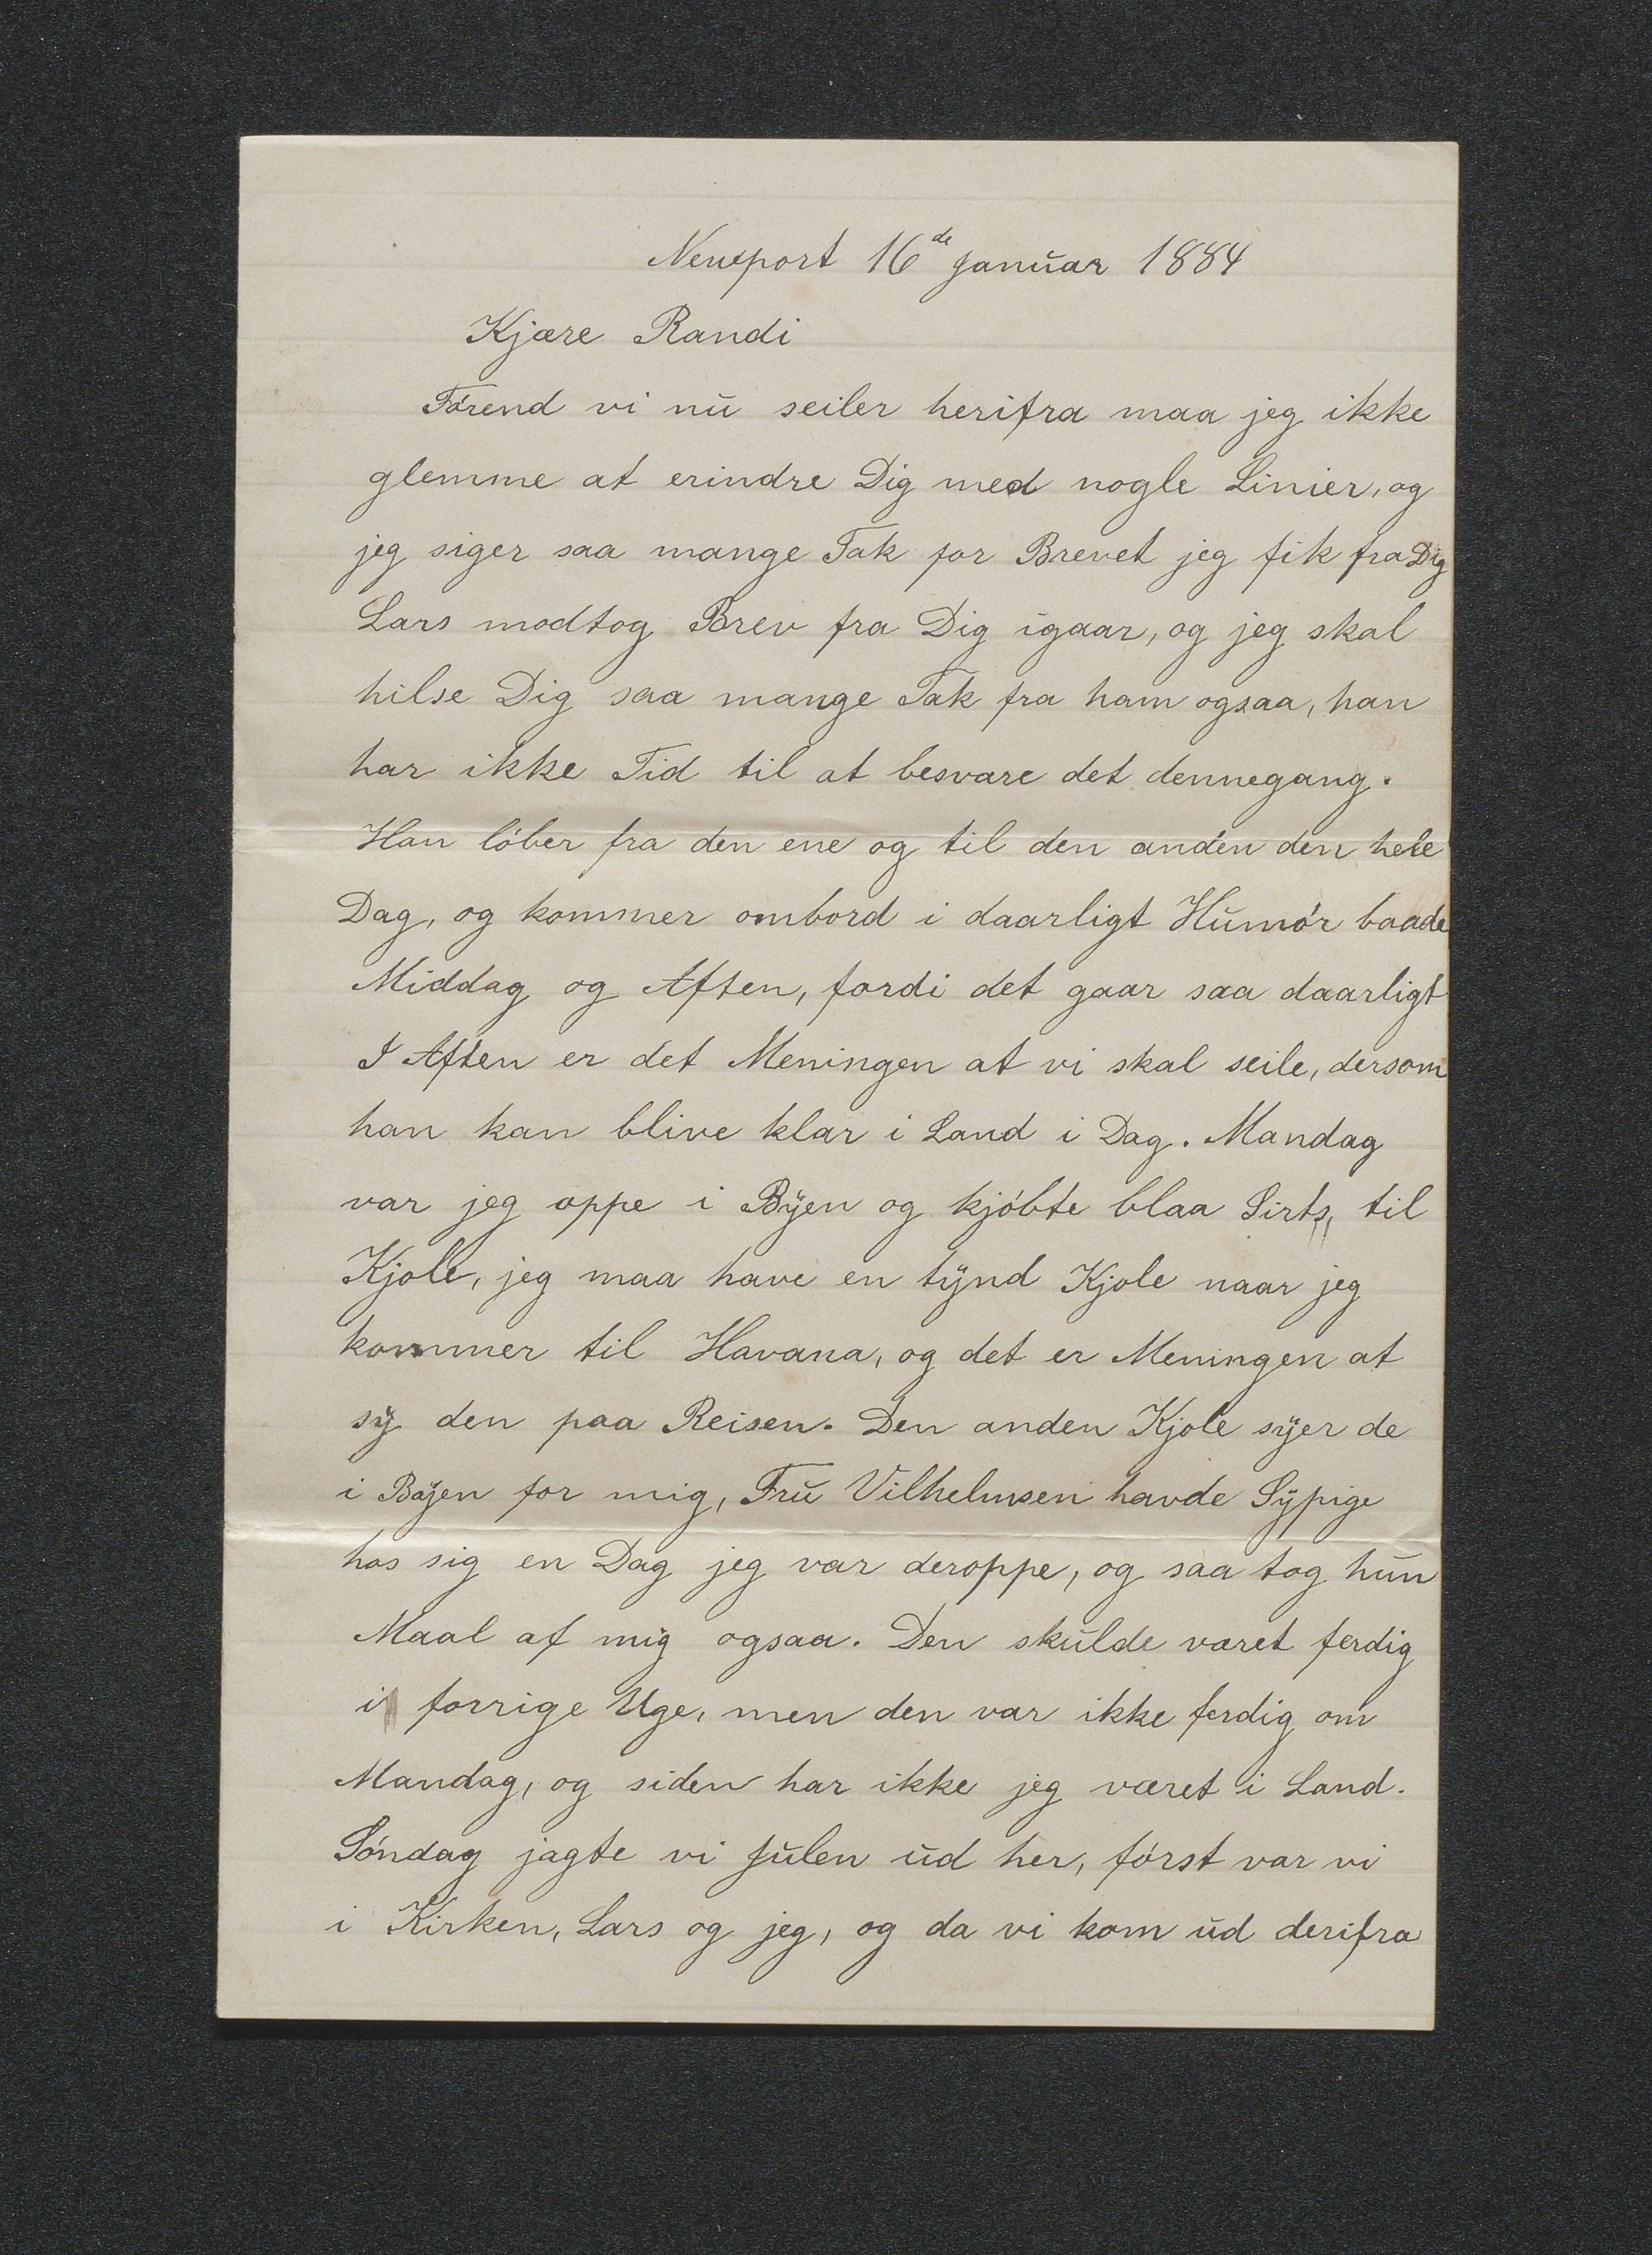 Newport 16de Januar 1884
Kjære Randi
Förend vi nu seiler herifra maa jeg ikke
glemme at erindre Dig med nogle Linier, og
jeg siger saa mange Tak for Brevet jeg fik fra Dig
Lars modtog Brev fra Dig igaar, og jeg skal
hilse Dig saa mange Tak fra ham ogsaa, han
har ikke Tid til at besvare det dennegang.
Han löber fra den ene og til den anden den hele
Dag, og kommer ombord i daarligt Humör baade
Middag og Aften, fordi det gaar saa daarligt
I Aften er det Meningen at vi skal seile, dersom
han kan blive klar i Land i Dag. Mandag
var jeg oppe i Byen og kjöbte blaa Sirts, til
Kjole, jeg maa have en tynd Kjole naar jeg
kommer til Havana, og det er Meningen at
sy den paa Reisen. Den anden Kjole syer de
i Byen for mig, Fru Vilhelmsen havde Sypige
hos sig en Dag jeg var deroppe, og saa tog hun
Maal af mig ogsaa. Den skulde været ferdig
i forrige Uge, men den var ikke ferdig om
Mandag, og siden har ikke jeg været i Land.
Söndag jagte vi Julen ud her, först var vi
i Kirken, Lars og jeg, og da vi kom ud derifra